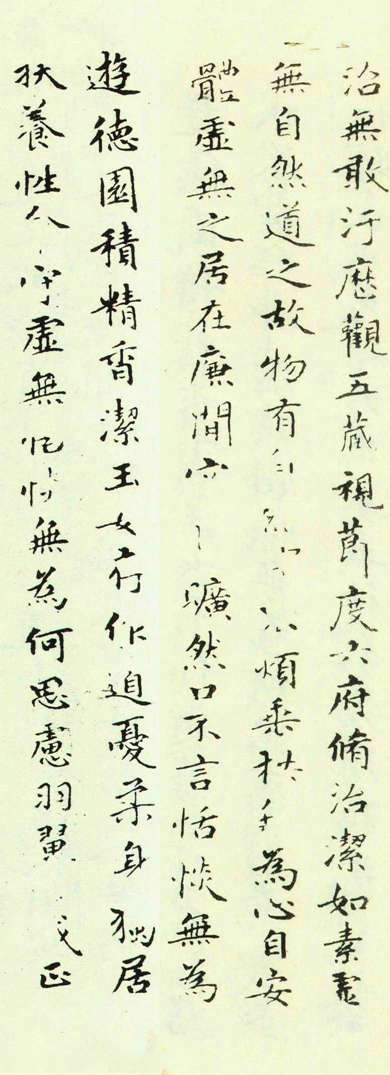 治無敢汙歷觀五藏視節度六府脩治潔如素虛
無自然道之故物有自不煩垂拱為心自安
體虛無之居在廉間曠然口不言恬惔無為
遊德園積精香潔玉女存作道憂柔身獨居
扶養性守虛無無為何思慮羽翼成正